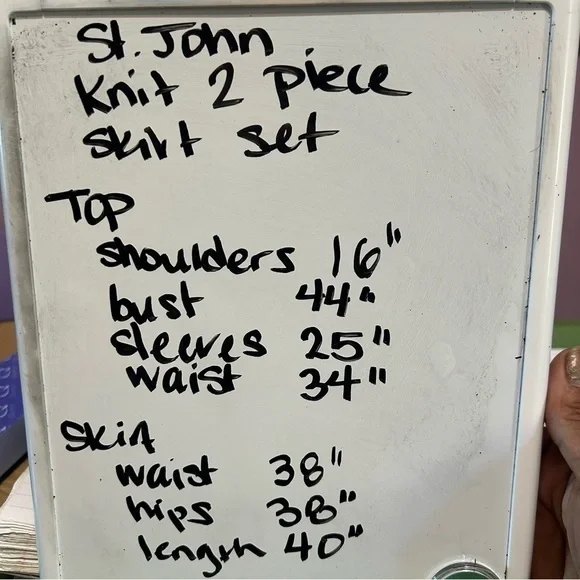 St. John
Knit 2 piece
skirt set
Top
shoulders 16"
bust 44"
sleeves 25"
waist 34"
Skirt
waist 38"
hips 38"
length 40"